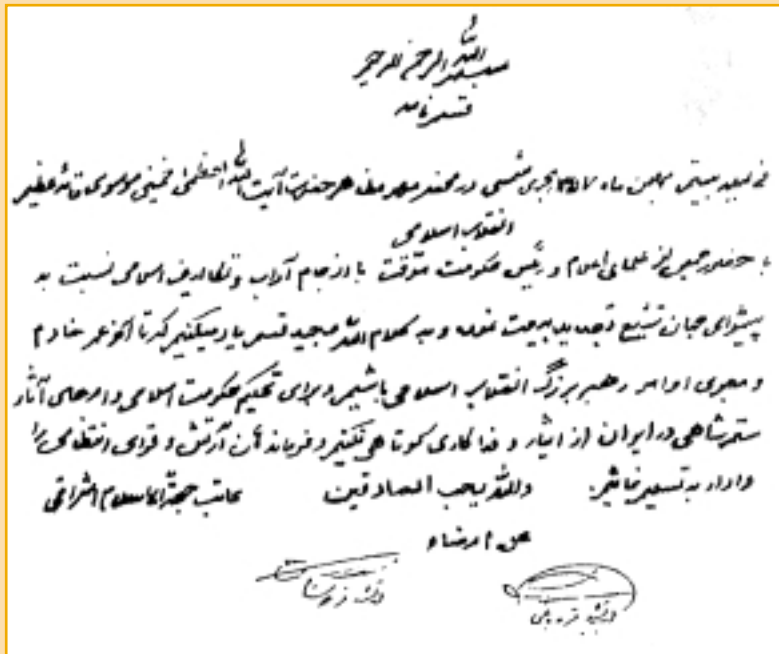 بسم الله الرحمن الرحیم
قسم نامه
بهمن ماه ۱۳۵۷ هجری شمسی در محضر حضرت آیت الله العظمی خمینی موسوی قائد عظیم
انقلاب اسلامی
با حضور جمعی از علمای اعلام و رئیس حکومت موقت با انجام آداب و تعارف اسلامی نسبت به
پیشوای جهان تشیع تجدید بیعت نموده و به کلام الله مجید قسم یاد میکنیم که تا آخر عمر خادم
و مجری اوامر رهبر بزرگ انقلاب اسلامی باشیم و برای تحکیم حکومت اسلامی و امحای آثار
ستمشاهی در ایران از ایثار و فداکاری کوتاهی نکنیم و فرماندهان ارتش و قوای انتظامی را
وادار به تسلیم نمائیم. والله یحب الصادقین کاتب حجة الاسلام اشراقی
محل امضاء